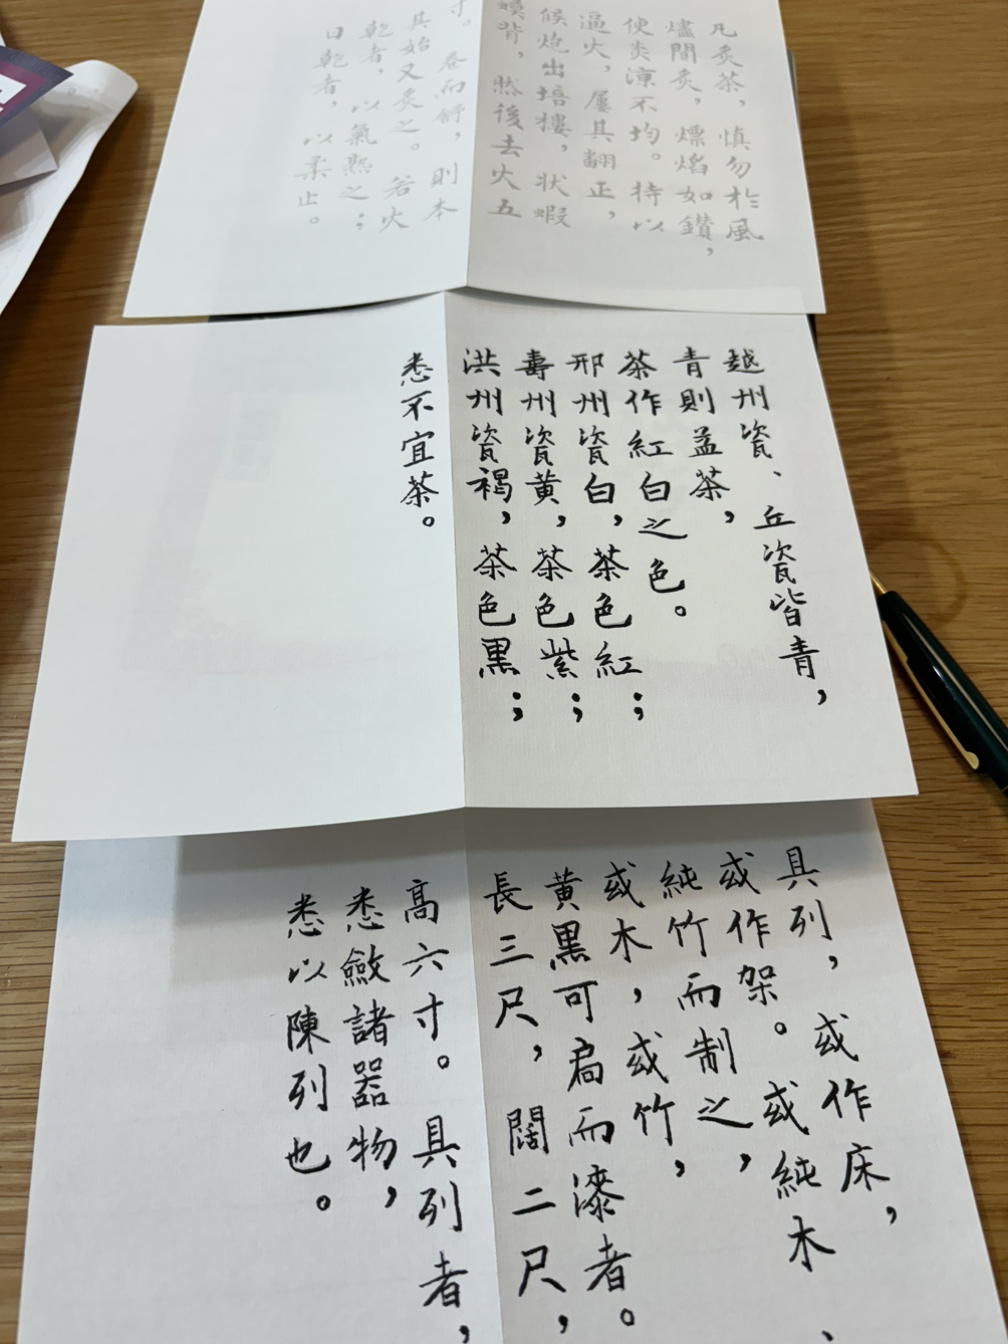 凡炙茶，慎勿於風
燼間炙，熛焰如鑽，
使炎凉不均。持以
逼火，屢其翻正，
候炮出培塿，狀蝦
蟆背，然後去火五
寸。卷而舒，則本
其始又炙之。若火
乾者，以氣熟之；
日乾者，以柔止。
越州瓷、丘瓷皆青，
青則益茶，
茶作紅白之色。
邢州瓷白，茶色紅；
壽州瓷黃，茶色紫；
洪州瓷褐，茶色黑；
悉不宜茶。
具列，或作床，
或作架。或純木、
純竹而制之，
或木，或竹，
黃黑可扃而漆者。
長三尺，闊二尺，
高六寸。具列者，
悉斂諸器物，
悉以陳列也。